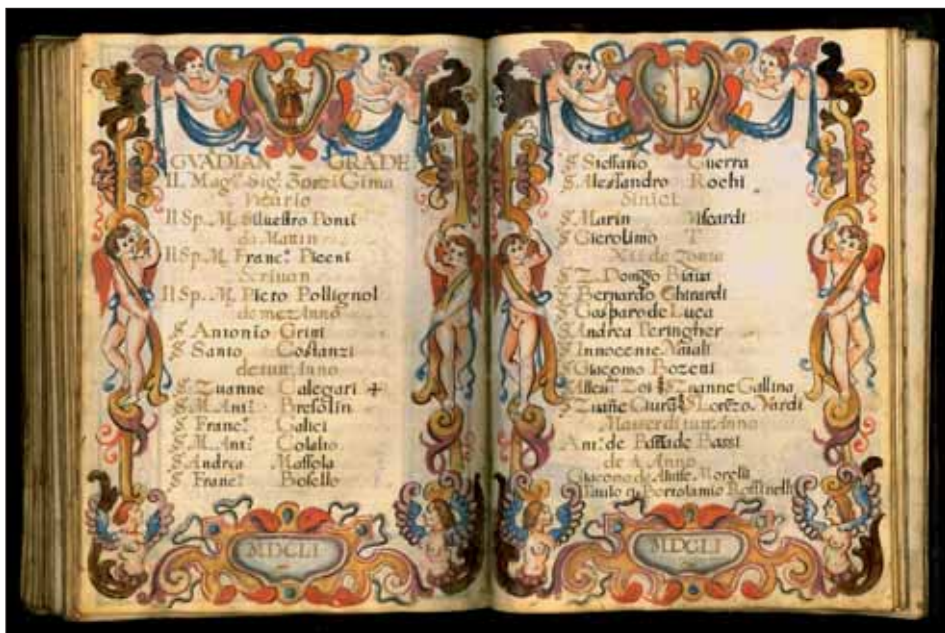 GVADIAN GRADE
IL Mag.co Sig.r Zorzi Gima
Vicario
Il Sp. M. Siluestro Ponti
da Mattin
Il Sp. M. Franc.o Piceni
Scriuan
Il Sp. M. Pieto Pollignol
de mez Anno
S. Antonio Grini
S. Santo Costanzi
de tutt Anno
S. Zuanne Calegari +
S. M. Ant.o Bresolin
S. Franc.o Galici
S. M. Ant.o Colalto
S. Andrea Massola
S. Franc.o Bosello
MDCLI
S R
S. Steffano Guerra
S. Alessandro Rochi
Sinici
S. Marin Viscardi
S. Gierolimo T
XII de Zonta
S. Z. Domgo Biaua
S. Bernardo Ghirardi
S. Gasparo de Luca
S. Andrea Peringher
S. Innocente Vitali
S. Giacomo Bozeni
Zoi S. Zuanne Gallina
S. Zuane S. Lorezo Vardi
Masser di tutt Anno
Ant.o de Bassi
de Anno
Giacomo de Morelli
Paulo q. Bortolamio Rossinelli
MDCLI